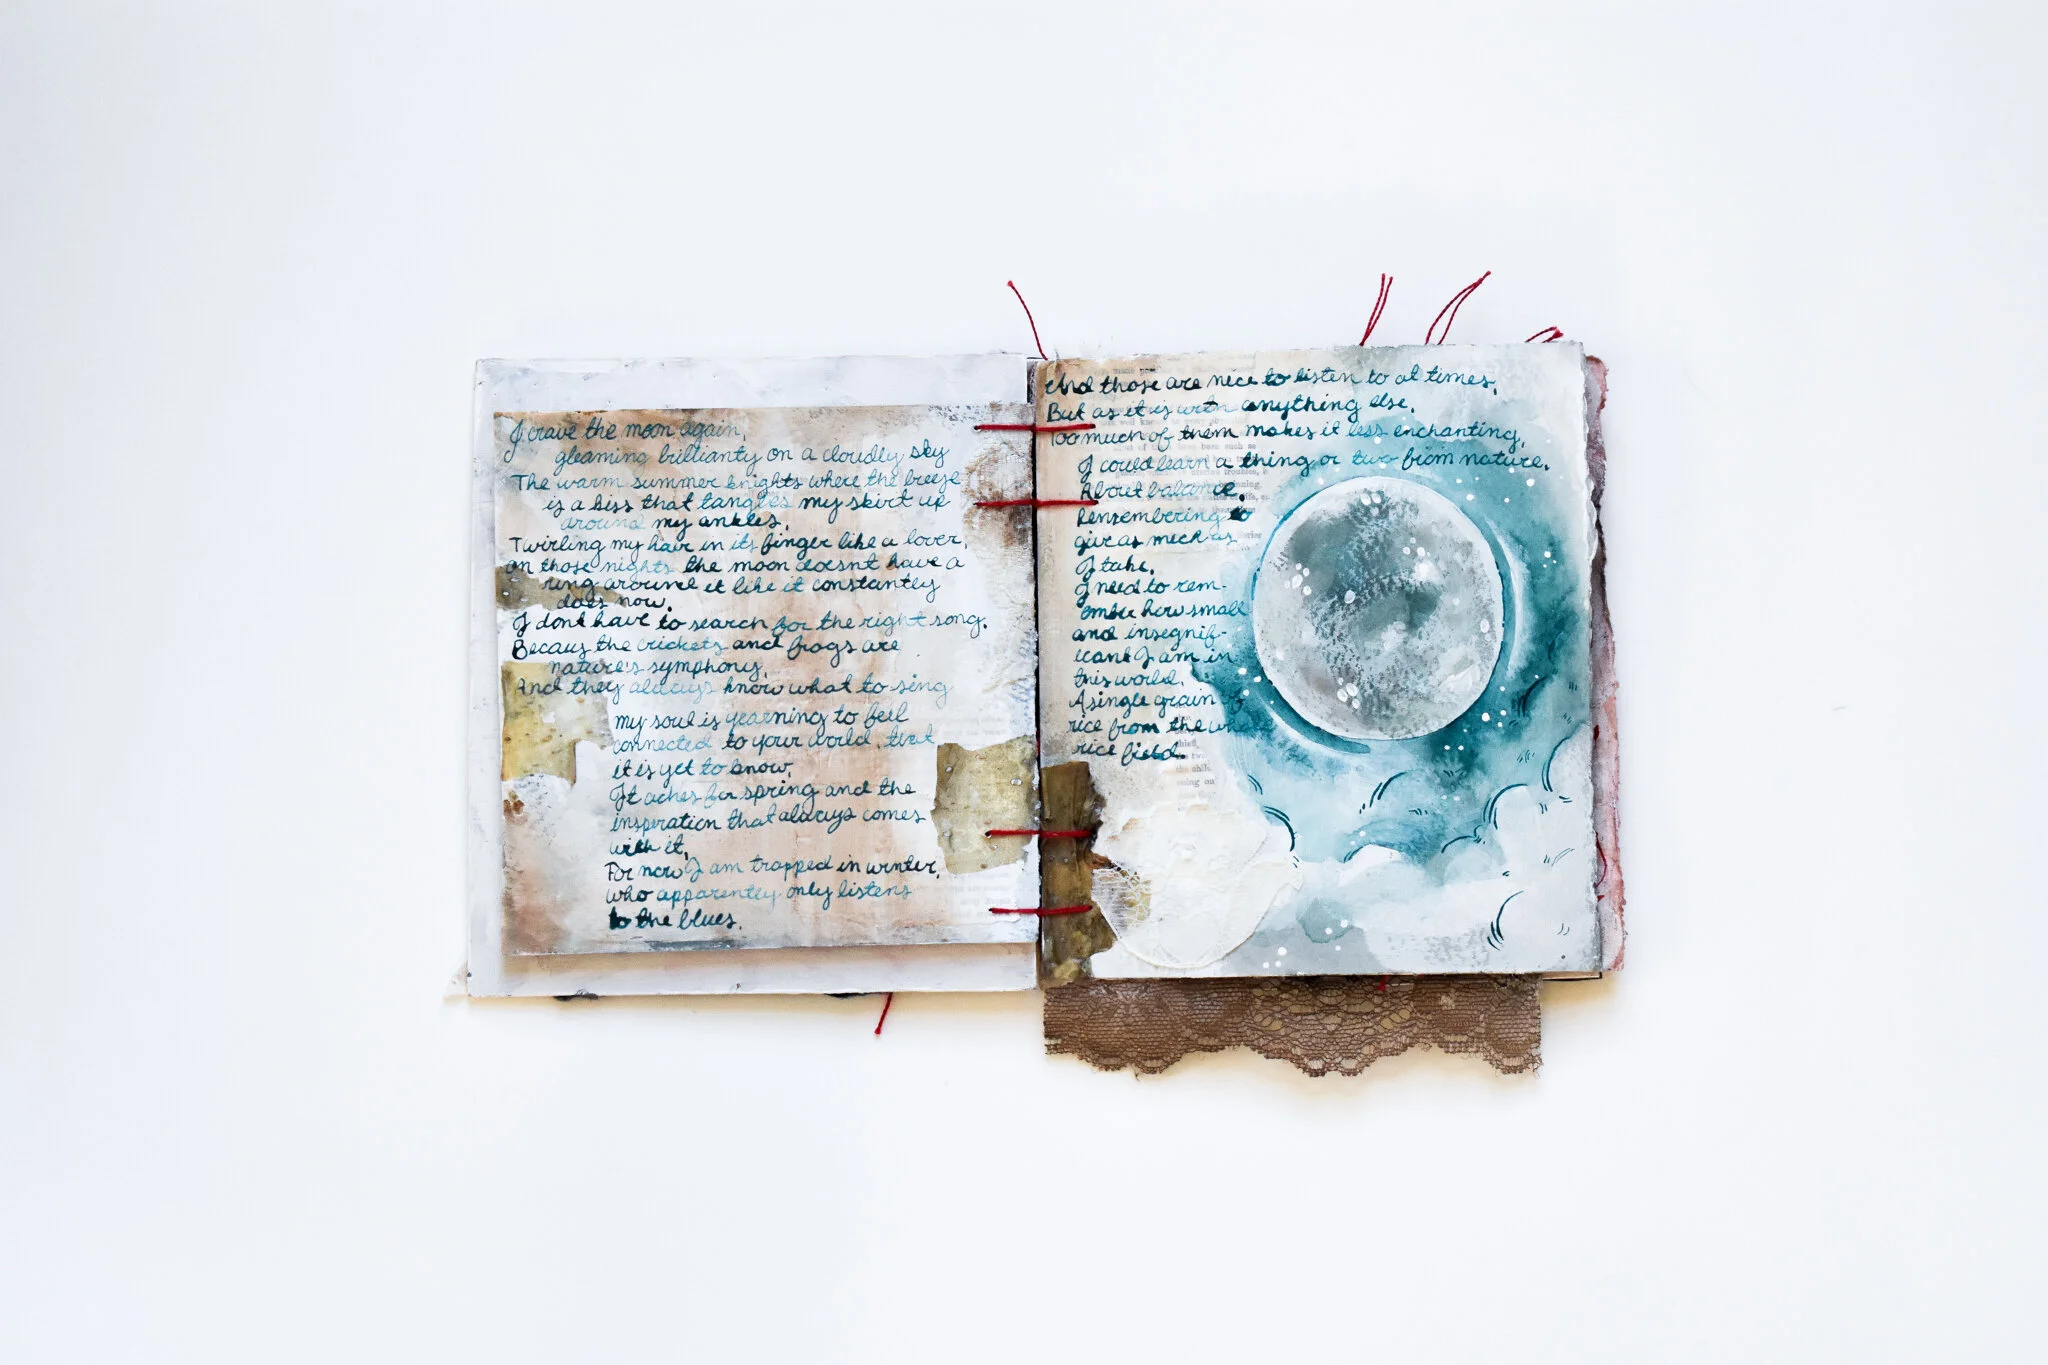 I crave the moon again,
gleaming brilliantly on a cloudly sky
The warm summer knights where the breeze
is a kiss that tangles my skirt up
around my ankles.
Twirling my hair in its finger like a lover,
on those nights the moon doesnt have a
ring around it like it constantly
does now.
I dont have to search for the right song.
Becaus the crickets and frogs are
nature's symphony.
And they always know what to sing
my soul is yearning to feel
connected to your world that
it is yet to know.
It aches for spring and the
inspiration that always comes
with it.
For now I am trapped in winter,
who apparently only listens
to the blues.
And those are nice to listen to at times.
But as it is with anything else.
Too much of them makes it less enchanting.
I could learn a thing or two from nature.
About balance.
Remembering to
give as much as
I take.
I need to rem-
ember how small
and insegnif-
icant I am in
this world.
A single grain of
rice from the whole
rice field.